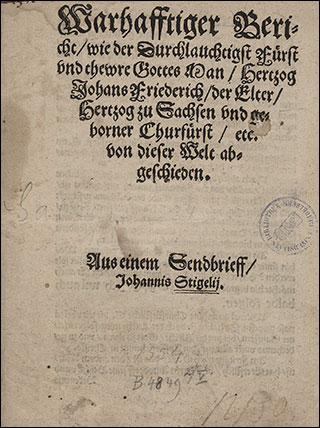 Warhafftiger Beri-
cht/wie der Durchlauchtigst Fürst
vnd thewre Gottes Man/Hertzog
Johans Friederich/der Elter/
Hertzog zu Sachsen vnd ge-
borner Churfürst/etc.
von dieser Welt ab-
geschieden.
Aus einem Sendbrieff/
Johannis Stigelij.
1554
B 4849